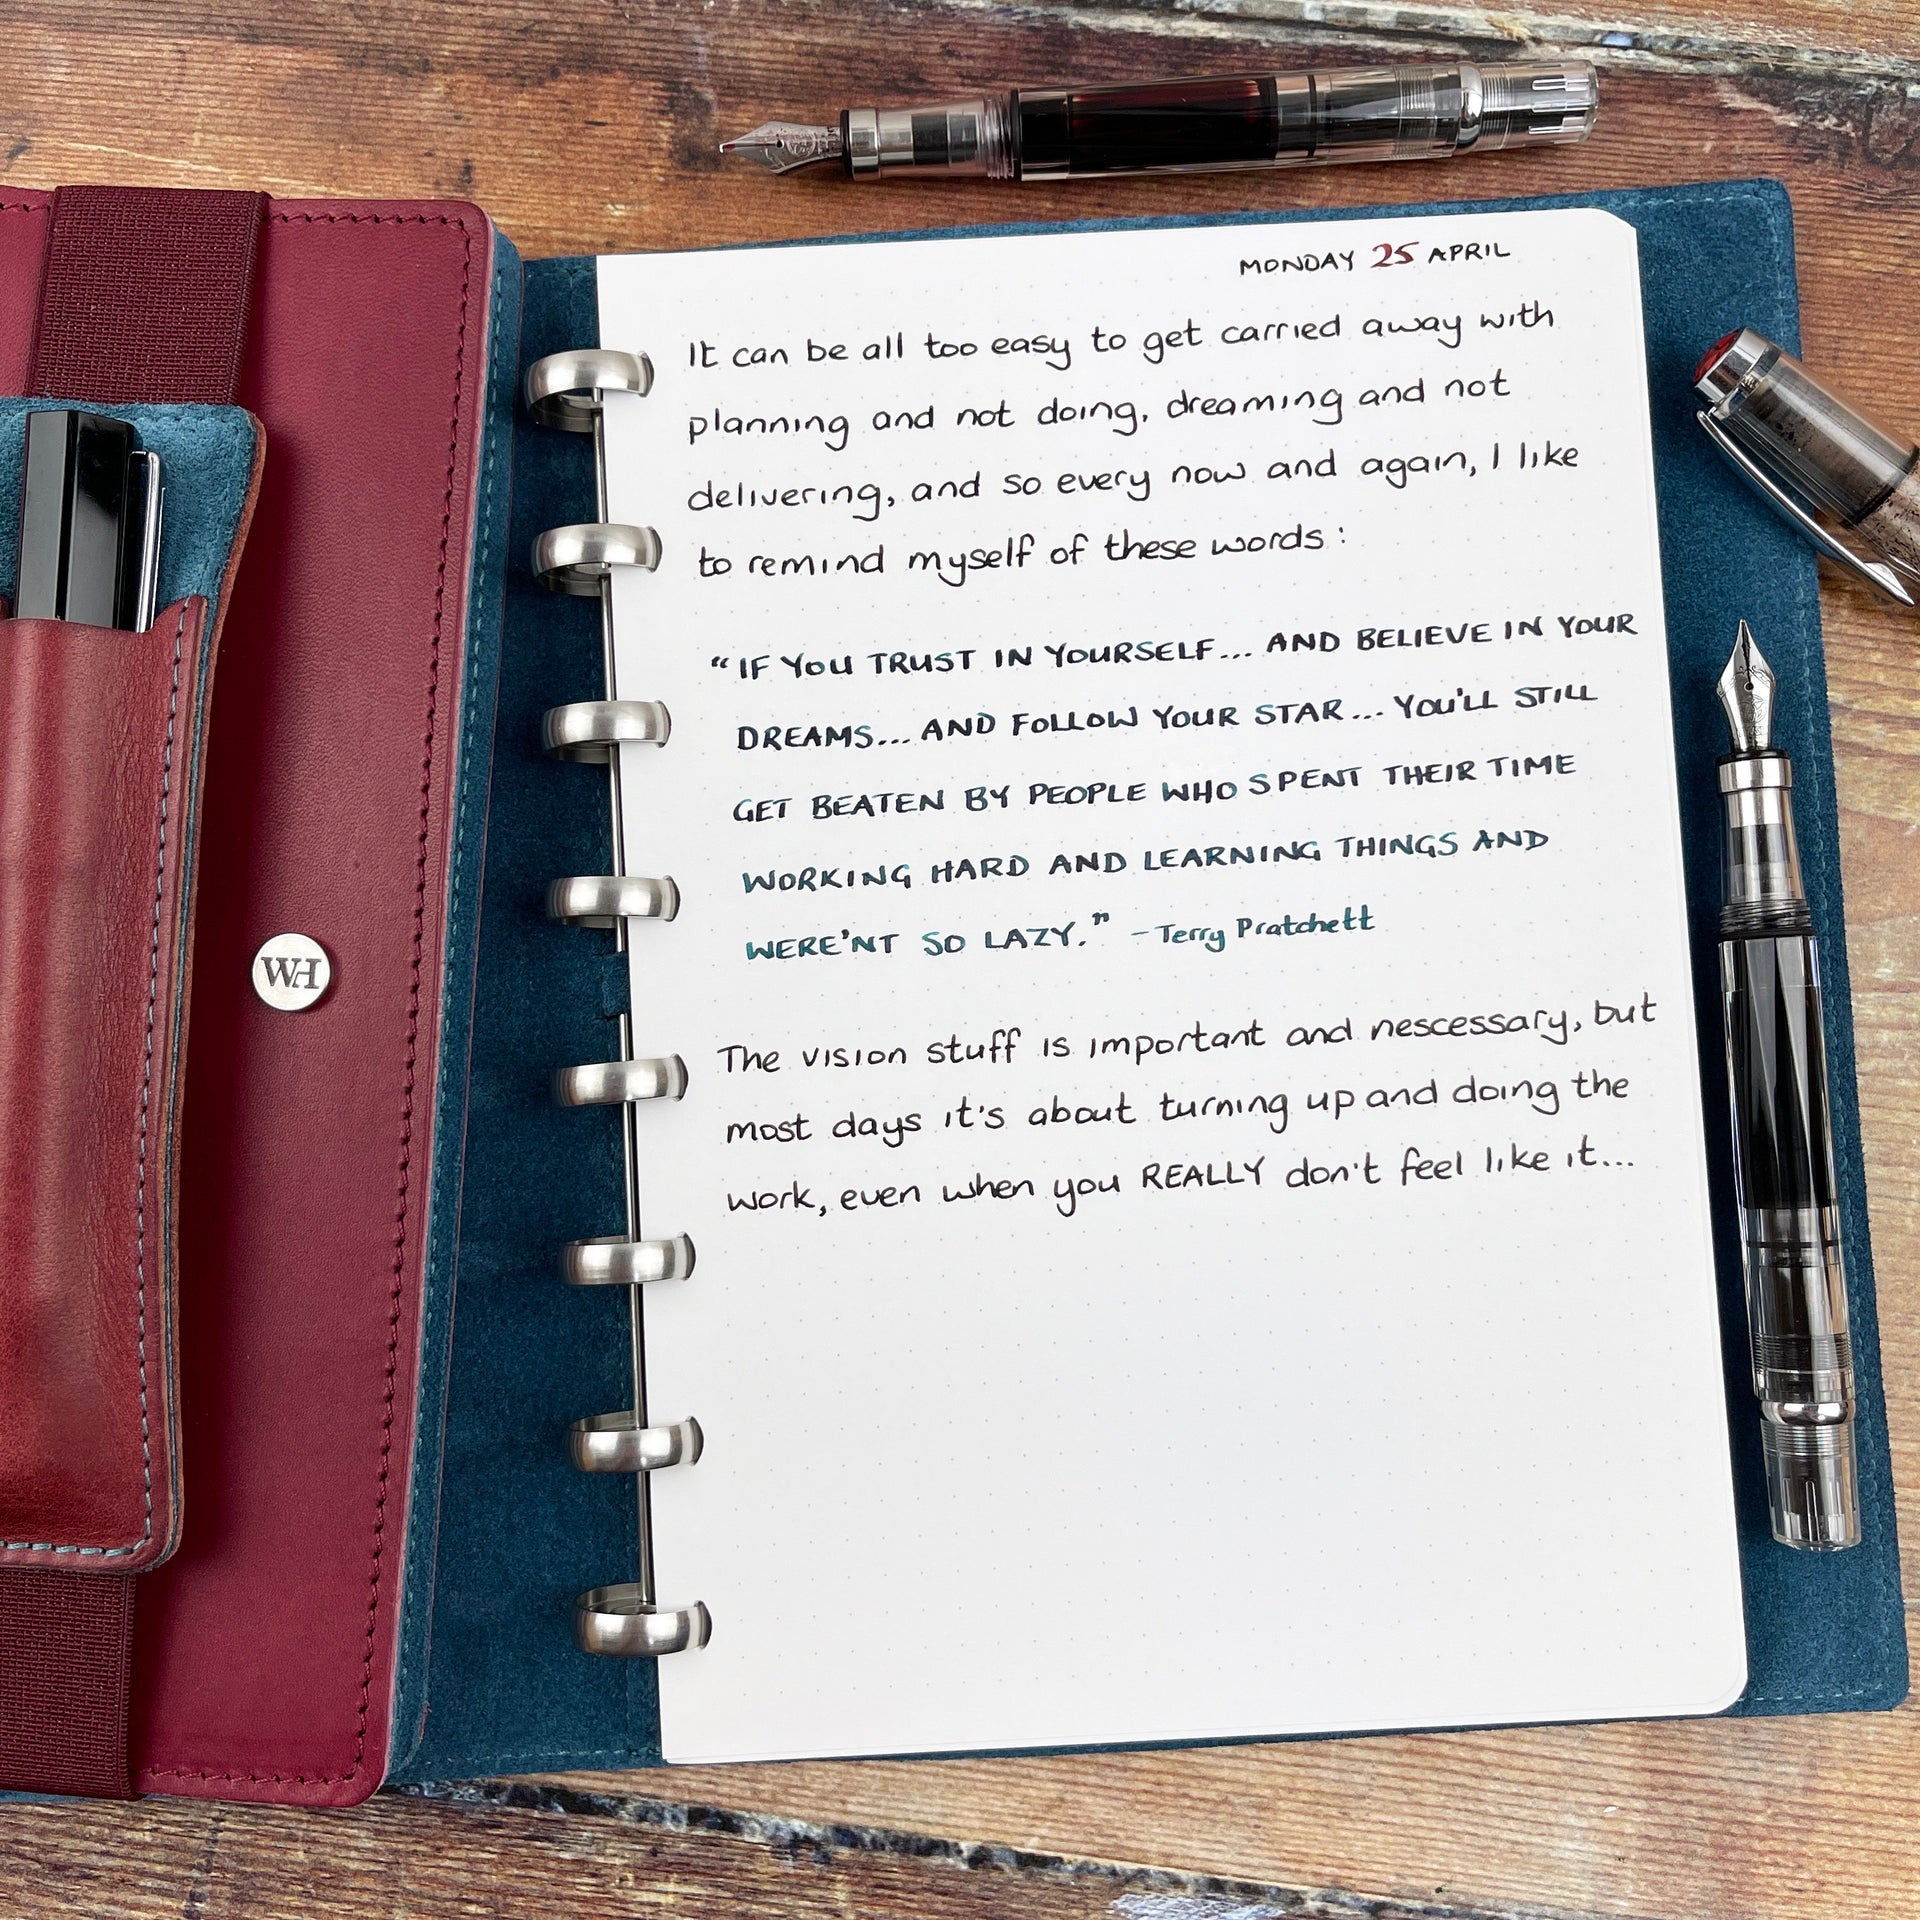 MONDAY 25 APRIL
It can be all too easy to get carried away with
planning and not doing, dreaming and not
delivering, and so every now and again, I like
to remind myself of these words :
“IF YOU TRUST IN YOURSELF... AND BELIEVE IN YOUR
DREAMS... AND FOLLOW YOUR STAR... YOU'LL STILL
GET BEATEN BY PEOPLE WHO SPENT THEIR TIME
WORKING HARD AND LEARNING THINGS AND
WERE'NT SO LAZY.” - Terry Pratchett
The vision stuff is important and nescessary, but
most days it's about turning up and doing the
work, even when you REALLY don't feel like it...
WH